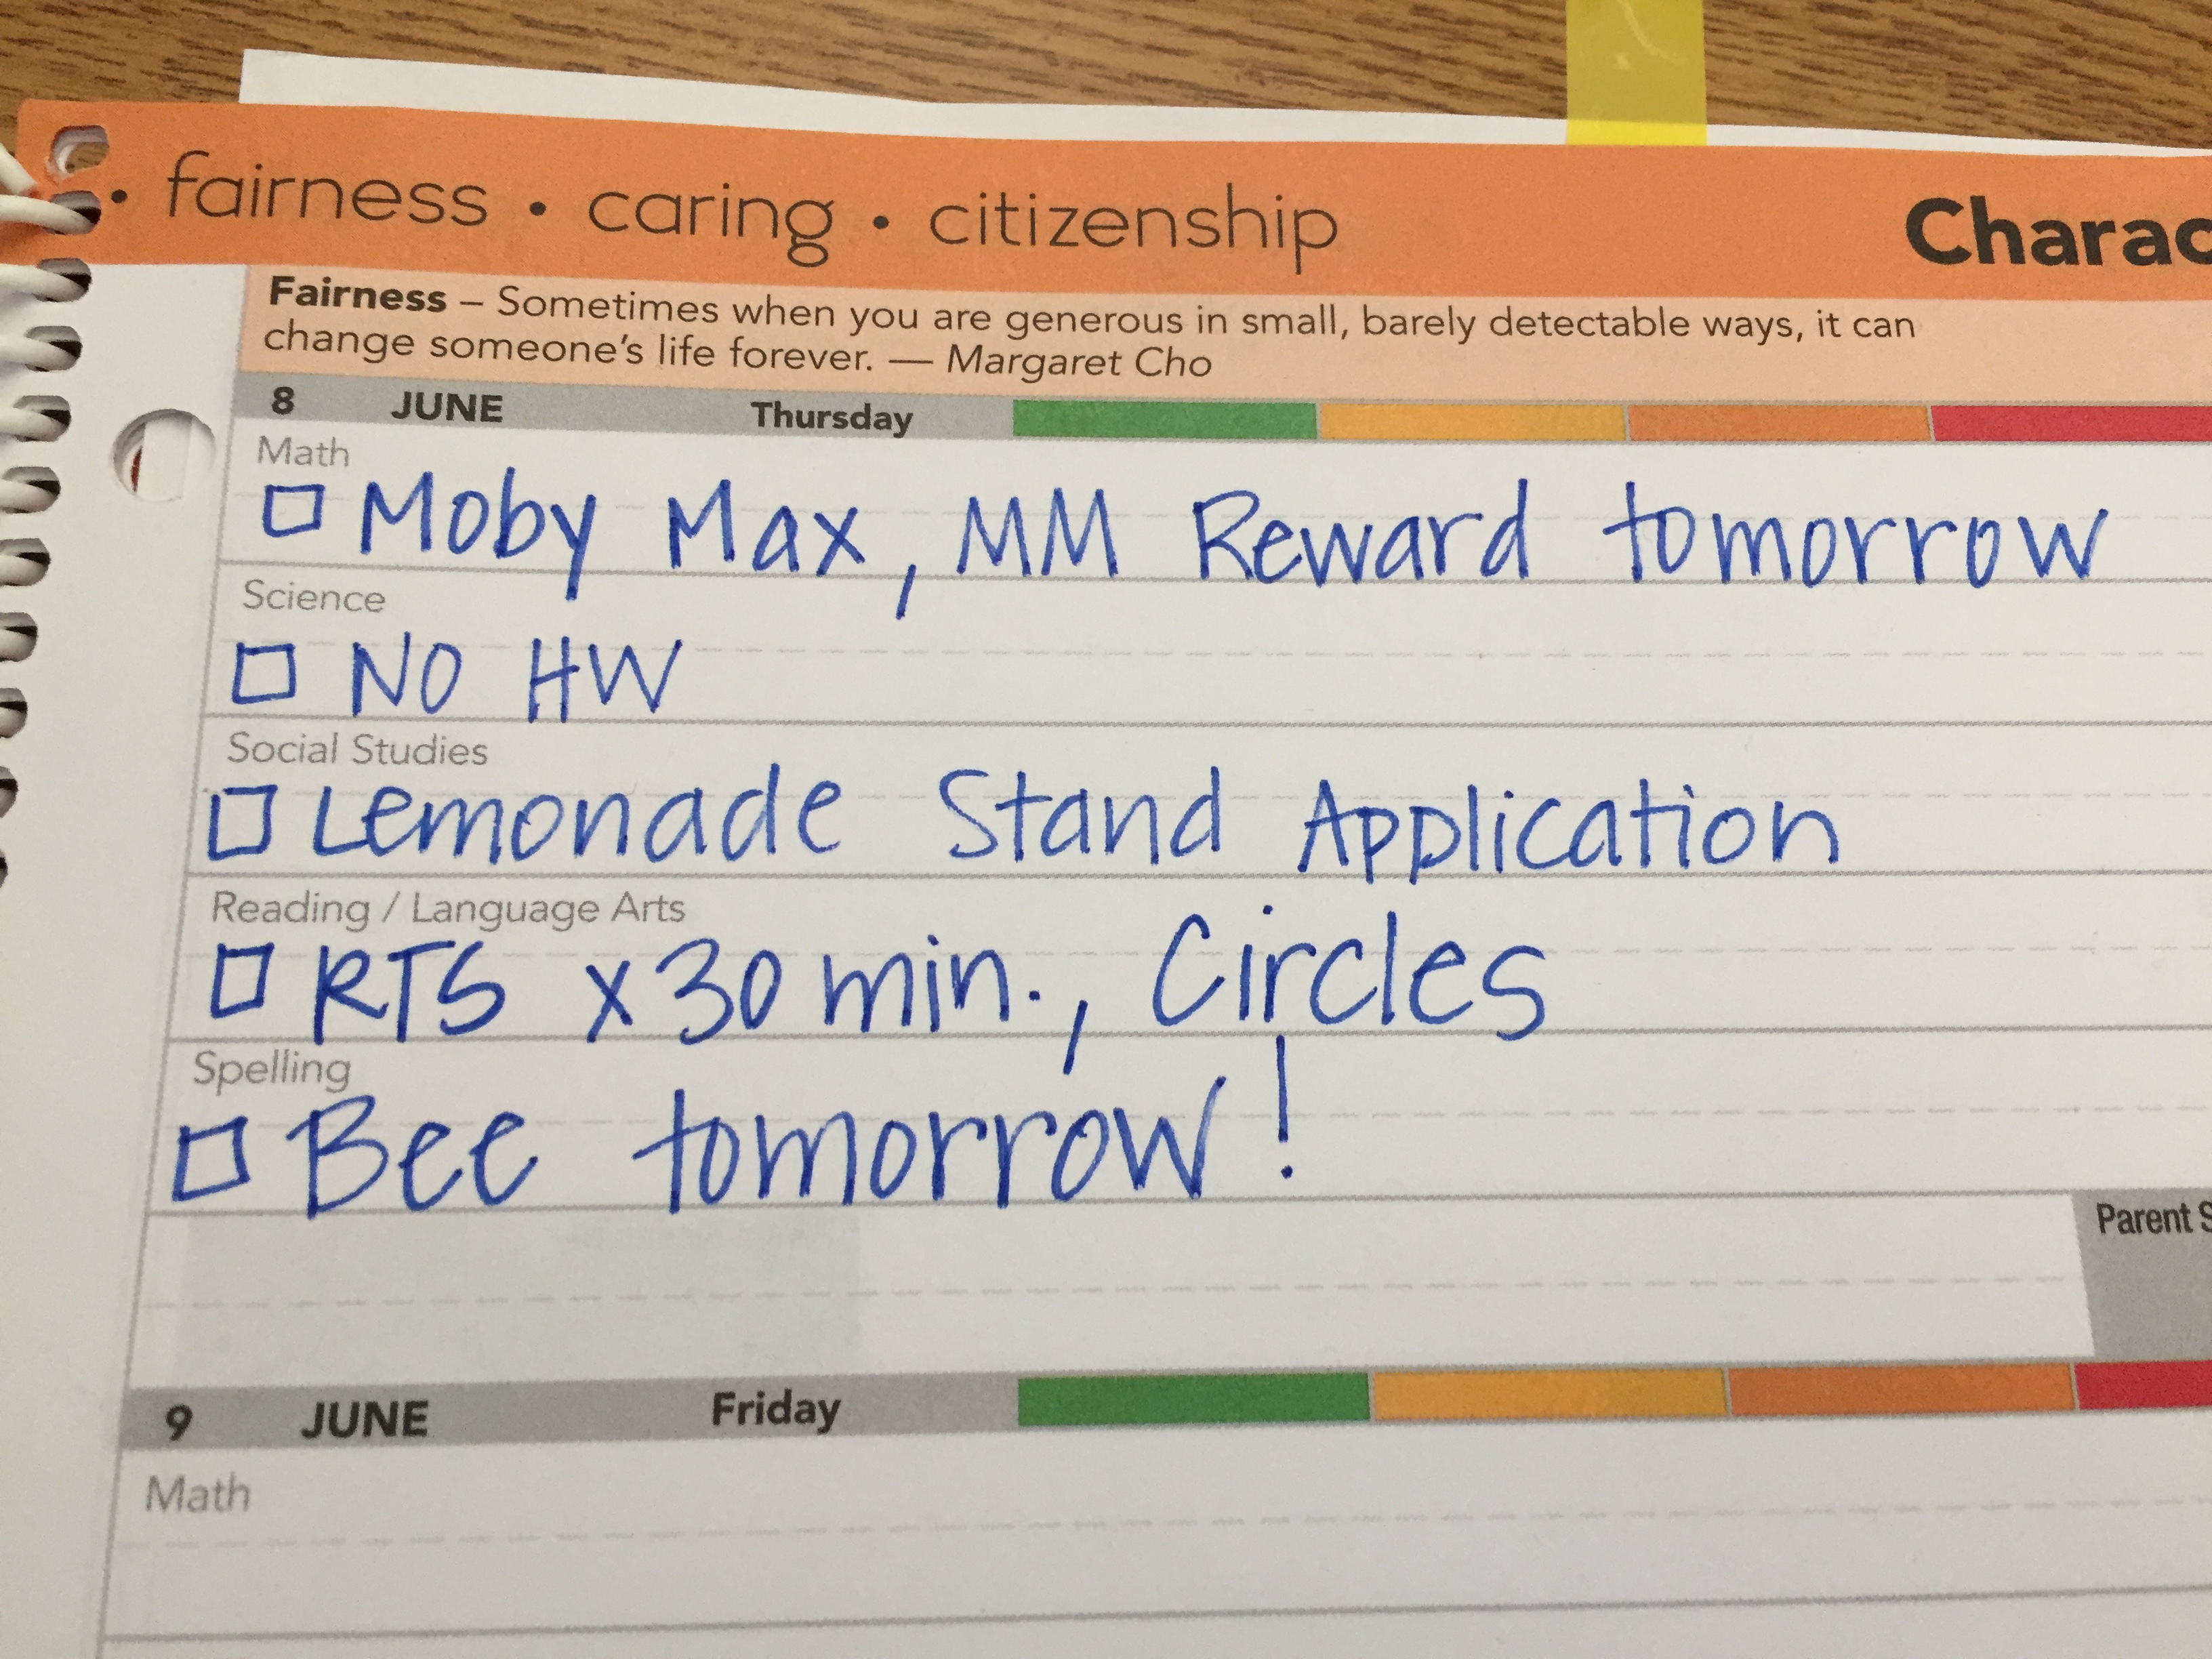 • fairness • caring • citizenship Charac
Fairness – Sometimes when you are generous in small, barely detectable ways, it can
change someone's life forever. — Margaret Cho
8 JUNE Thursday
Math
Moby Max, MM Reward tomorrow
Science
NO HW
Social Studies
Lemonade Stand Application
Reading / Language Arts
RTS x 30 min., Circles
Spelling
Bee tomorrow!
Parent S
9 JUNE Friday
Math